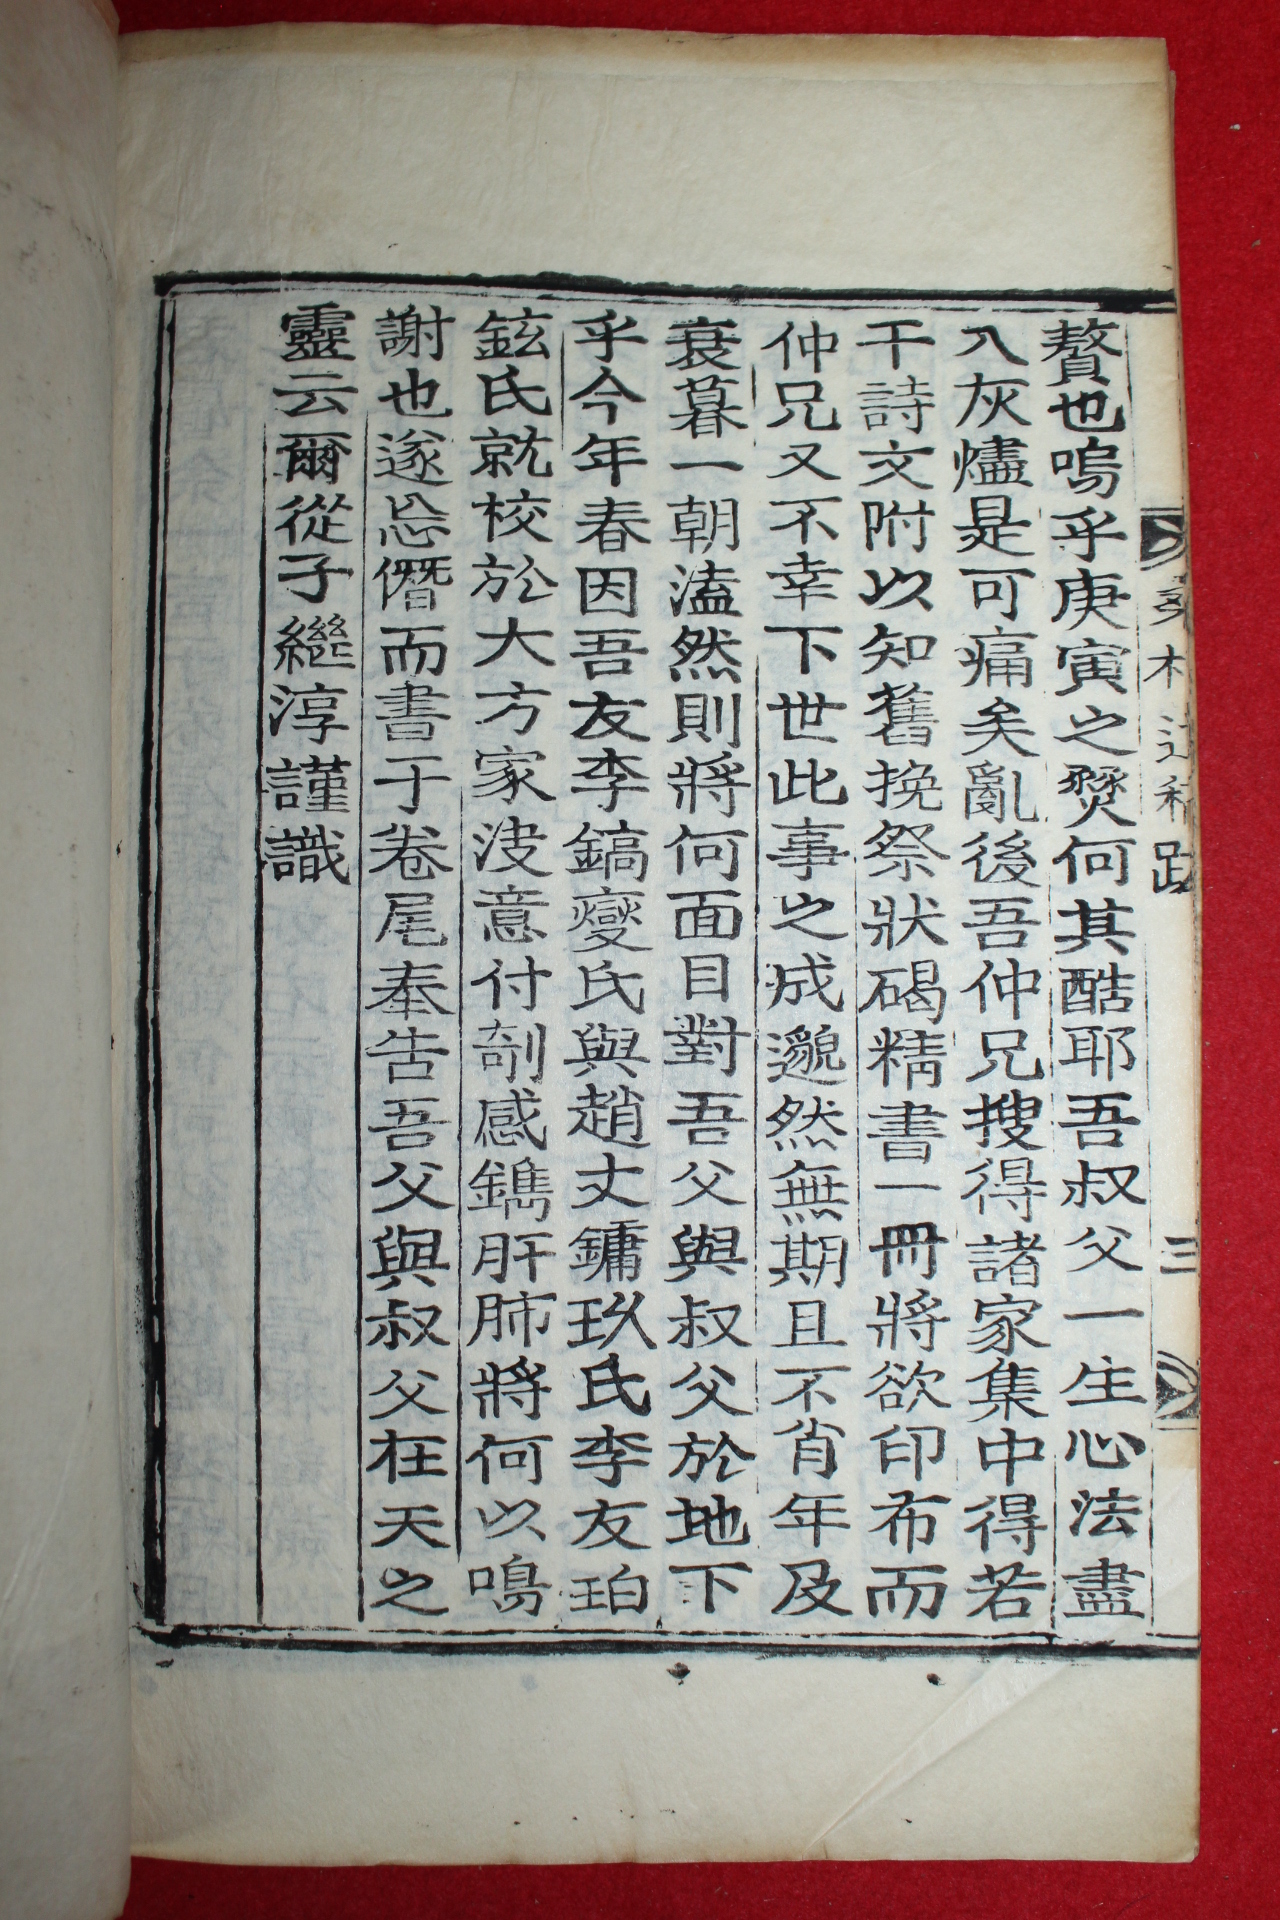 贅也嗚乎庚寅之燹何其酷耶吾叔父一生心法盡
入灰燼是可痛矣亂後吾仲兄搜得諸家集中得若
干詩文附以知舊挽祭狀碣精書一冊將欲印布而
仲兄又不幸下世此事之成邈然無期且不肖年及
衰暮一朝溘然則將何面目對吾父與叔父於地下
乎今年春因吾友李鎬燮氏與趙丈鏞玖氏李友珀
鉉氏就校於大方家決意付剞感鐫肝肺將何以鳴
謝也遂忘僭而書于卷尾奉告吾父與叔父在天之
靈云爾從子繼淳謹識
三